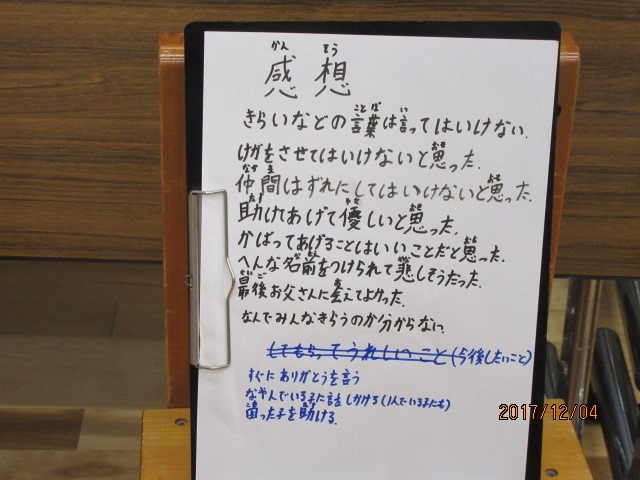 感想
きらいなどの言葉は言ってはいけない.
けがをさせてはいけないと思った.
仲間はずれにしてはいけないと思った.
助けてあげて優しいと思った.
かばってあげることはいいことだと思った.
へんな名前をつけられて悲しそうだった.
最後お父さんに会えてよかった.
なんでみんなきらうのか分からない.
してもらってうれしいこと(今後したいこと)
すぐにありがとうを言う
なやんでいる子に話しかける(1人でいる子にも)
困った子を助ける.
2017/12/04